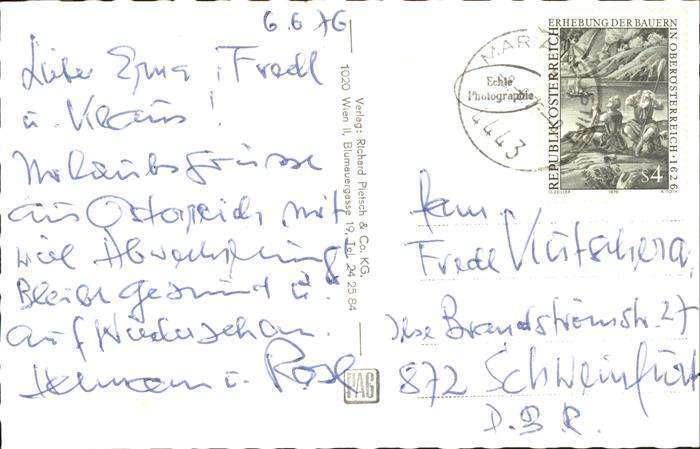 6.6 76
Liebe Erna, Fredl
u. Klaus!
Urlaubsgrüsse
aus Österreich mit
viel Abwechslung
Bleibt gesund u.
auf Wiedersehen.
Hermann u. Rosl
Verlag: Richard Pietsch & Co. KG.
1020 Wien II, Blumauergasse 19, Tel. 24 25 84
PAG
MAR
4443
Echte
Photographie
ERHEBUNG DER BAUERN
IN OBERÖSTERREICH · 1626
REPUBLIK ÖSTERREICH
S4
1976
Fam.
Fredl Kutschera
Brandströmstr. 27
872 Schweinfurt
D.B.R.